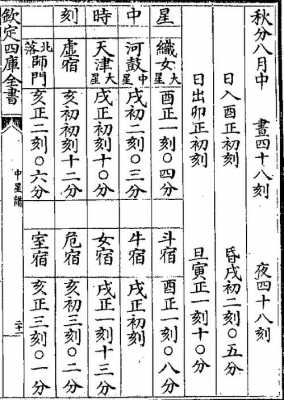 秋分八月中 晝四十八刻 夜四十八刻
日入酉正初刻 昏戌初二刻〇五分
日出卯正初刻 旦寅正一刻十〇分
星中時刻
織女大星 酉正一刻〇四分 斗宿 酉正一刻〇八分
河鼓中星 戌初二刻〇三分 牛宿 戌正初刻
天津大星 戌正初刻十〇分 女宿 戌正一刻十三分
虛宿 亥初初刻十二分 危宿 亥初三刻〇二分
北落師門 亥正二刻〇六分 室宿 亥正三刻〇一分
欽定四庫全書 中星譜 二十